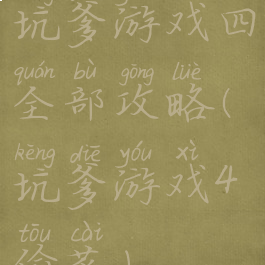 坑爹游戏四
quán bù gōng lüè
全部攻略(
kēng diē yóu xì
坑爹游戏4
tōu cài
偷菜)